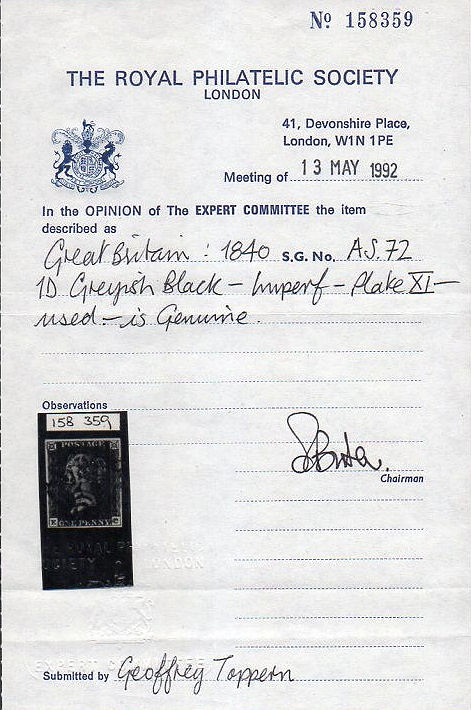 No 158359
THE ROYAL PHILATELIC SOCIETY
LONDON
41, Devonshire Place,
London, W1N 1PE
Meeting of 13 MAY 1992
In the OPINION of The EXPERT COMMITTEE the item
described as
Great Britain : 1840 S.G. No. AS.72
1D Greyish Black - Imperf - Plate XI -
used - is Genuine.
Observations
158 359
POSTAGE
ONE PENNY
Chairman
Submitted by Geoffrey Toppern